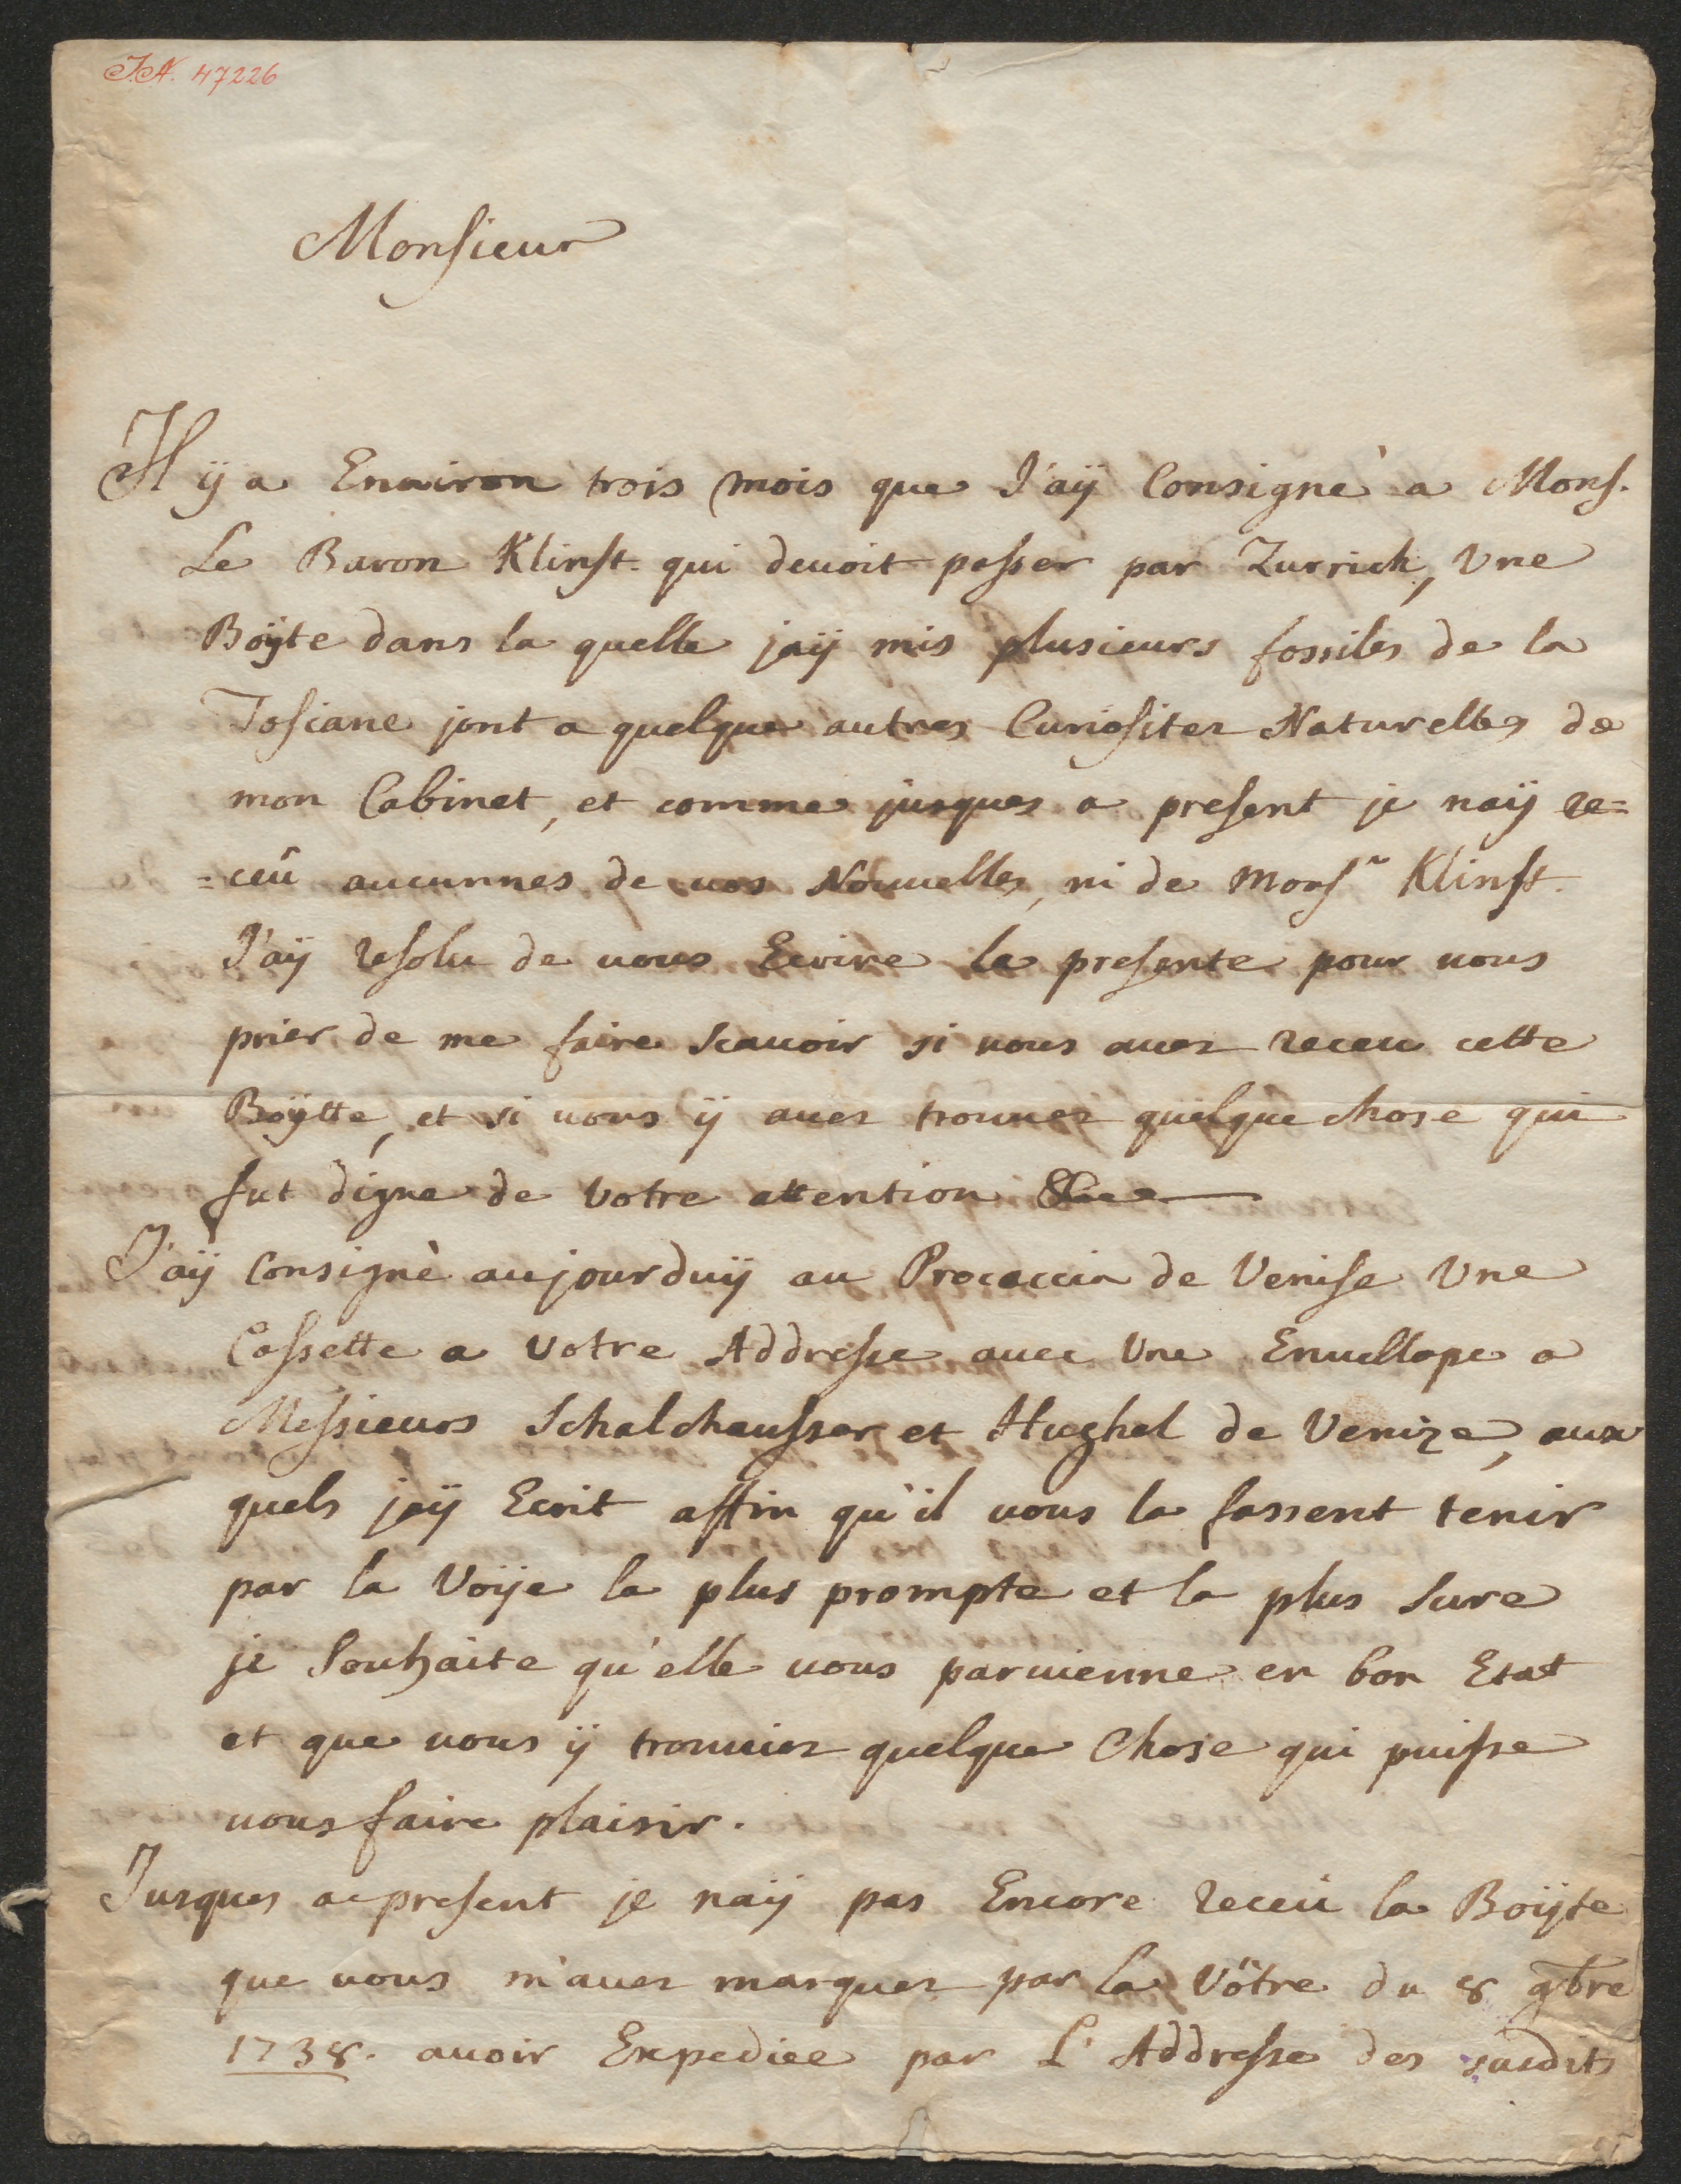 I.N. 47226
Monsieur
Il ÿ a Enuiron trois mois que J'aÿ Consignè a Mons.
Le Baron Klinst. qui deuoit passer par Zurrich, Une
Boÿte dans la quelle jaÿ mis plusieurs fossiles de la
Tosciane jont a quelque autres Curiositez Naturelles de
mon Cabinet, et comme jusques a present je naÿ re=
=ceû aucunnes de uos Nouuelles, ni de Monsr Klinst.
J'aÿ resolu de uous Ecrire la presente pour uous
prier de me faire scauoir si uous auez receu cette
Boÿtte, et si uous ÿ auez trouuez quelque chose qui
fut digne de Votre attention &c
J'aÿ Consignè aujourduÿ au Procaccia de Venise Une
Cassette a Votre Addresse auec Une Enuellope a
Messieurs Schalchausser et Hughel de Venize, aux
quels jaÿ Ecrit affin qu'il uous la fassent tenir
par la Voÿe la plus prompte et la plus Sure
je Souhaite qu'elle uous paruienne en bon Etat
et que uous ÿ trouuiez quelque Chose qui puisse
uous faire plaisir.
Jusques a present je naÿ pas Encore receû la Boÿte
que uous m'auez marquez par la Vôtre du 8 9bre
1738. auoir Expediee par L'Addresse des susdits